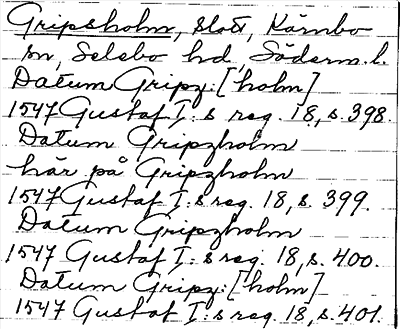 Gripsholm, slott, Kärnbo
sn, Selebo hd, Söderm. l.
Datum Gripz:[holm]
1547 Gustaf I:s reg. 18, s. 398.
Datum Gripzholm
här på Gripzholm
1547 Gustaf I:s reg. 18, s. 399.
Datum Gripzholm
1547 Gustaf I:s reg. 18, s. 400.
Datum Gripz:[holm]
1547 Gustaf I:s reg. 18, s. 401.